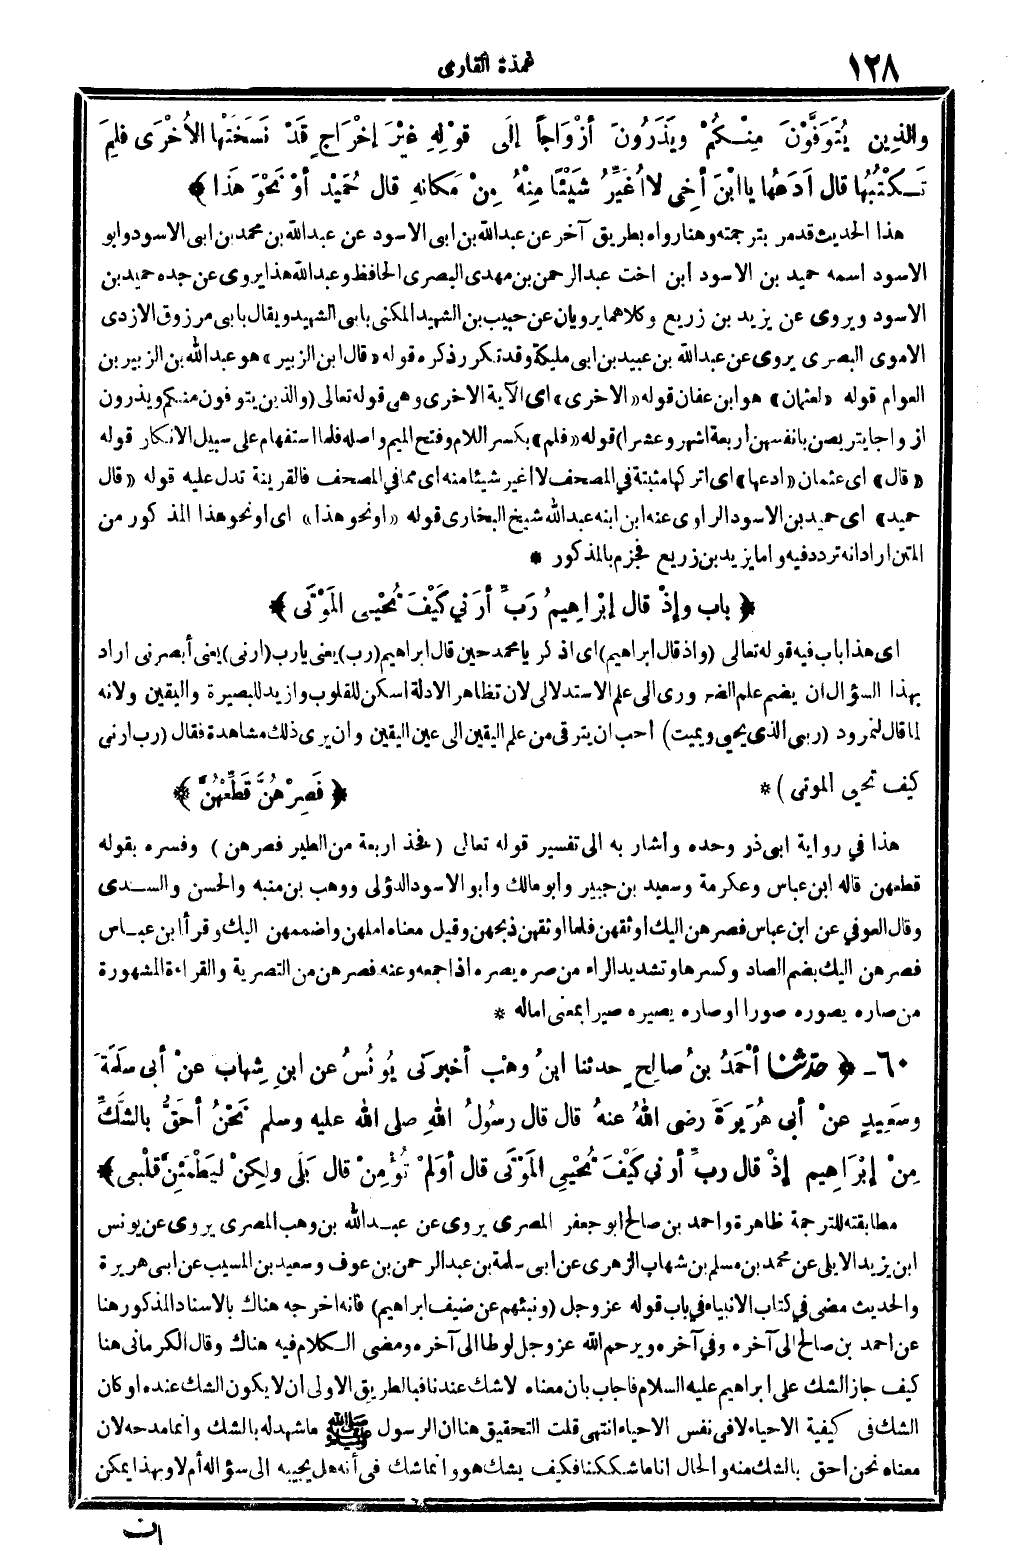 ١٢٨
عمدة القارى
والذِينَ يُتَوَفَّوْنَ مِنْكُمْ ويَذَرُونَ أزْوَاجاً إلَى قوْلِهِ غيْرَ إخْرَاجٍ قَدْ نَسَخَتْها الأُخْرَى فلِمَ
تَكْتُبُها قال ادَعْها ياابْنَ أخِى لاأُغَيِّرُ شَيْئًا مِنْهُ مِنْ مَكانهِ قال حُمَيْد أوْ نَحْوَ هَذا ﴾
هذا الحديث قدمر بترجمته وهنا رواه بطريق آخر عن عبدالله بن ابى الاسود عن عبدالله بن محمد بن ابى الاسود وابو
الاسود اسمه حميد بن الاسود ابن اخت عبدالرحمن بن مهدى البصرى الحافظ وعبدالله هذا يروى عن جده حميد بن
الاسود ويروى عن يزيد بن زريع وكلاهما يرويان عن حبيب بن الشهيد المكنى بابى الشهيد ويقال بابى مرزوق الازدى
الاموى البصرى يروى عن عبدالله بن عبيد بن ابى مليكة وقد تكرر ذكره قوله «قال ابن الزبير» هو عبدالله بن الزبير بن
العوام قوله «لعثمان» هو ابن عفان قوله «الاخرى» اى الآية الاخرى وهى قوله تعالى (والذين يتوفون منكم ويذرون
ازواجا يتربصن بانفسهن أربعة اشهر وعشرا) قوله «فلم» بكسر اللام وفتح الميم واصله فلما استفهام على سبيل الانكار قوله
«قال» اى عثمان «ادعها» اى اتركها مثبتة في المصحف لا اغير شيئا منه اى مما في المصحف فالقرينة تدل عليه قوله «قال
حميد» اى حميد بن الاسود الراوى عنه ابن ابنه عبدالله شيخ البخارى قوله «او نحو هذا» اى او نحو هذا المذكور من
المتن اراد انه تردد فيه واما يزيد بن زريع فجزم بالمذكور *
﴿ باب وإذْ قال إبْرَاهِيمُ رَبِّ أرِنِي كَيْفَ تُحْيِى المَوْتَى ﴾
اى هذا باب فيه قوله تعالى (واذ قال ابراهيم) اى اذكر يا محمد حين قال ابراهيم (رب) يعنى يارب (ارنى) يعنى أبصرنى اراد
بهذا السؤال ان يضم علم الضرورى الى علم الاستدلالى لان تظاهر الادلة اسكن للقلوب وازيد للبصيرة واليقين ولانه
لما قال لنمرود (ربى الذى يحيى ويميت) أحب ان يترقى من علم اليقين الى عين اليقين وان يرى ذلك مشاهدة فقال (رب ارنى
كيف تحيى الموتى) * ﴿ فَصِرْهُنَّ قَطِّعْهُنَّ ﴾ *
هذا في رواية ابى ذر وحده وأشار به الى تفسير قوله تعالى (فخذ اربعة من الطير فصرهن) وفسره بقوله
قطعهن قاله ابن عباس وعكرمة وسعيد بن جبير وأبو مالك وأبو الاسود الدؤلى ووهب بن منبه والحسن والسدى
وقال العوفي عن ابن عباس فصرهن اليك اوثقهن فلما اوثقهن ذبحهن وقيل معناه املهن واضممهن اليك وقرأ ابن عباس
فصرهن اليك بضم الصاد وكسرها وتشديد الراء من صره يصره اذا جمعه وعنه فصرهن من التصرية والقراءة المشهورة
من صاره يصوره صورا او صاره يصيره صيرا بمعنى اماله *
٦٠ - ﴿ حدّثنا أحْمَدُ بنُ صالِحٍ حدثنا ابنُ وهْبٍ أخبرَنى يُونُسُ عن ابنِ شِهابٍ عنْ أبى سلَمَةَ
وسَعِيدٍ عنْ أبى هُرَيرَةَ رضى اللهُ عنهُ قال قال رسُولُ اللهِ صلى الله عليه وسلم نَحْنُ أحَقُّ بالشَّكِّ
مِنْ إبْرَاهِيم إذْ قال ربِّ أرِنِي كَيْفَ تُحْيِي المَوْتَى قال أوَلمْ تُؤْمِنْ قال بَلَى ولكِنْ ليَطْمَئِنَّ قلْبى ﴾
مطابقته للترجمة ظاهرة واحمد بن صالح ابو جعفر المصرى يروى عن عبدالله بن وهب المصرى يروى عن يونس
ابن يزيد الايلى عن محمد بن مسلم بن شهاب الزهرى عن ابى سلمة بن عبدالرحمن بن عوف وسعيد بن المسيب عن ابى هريرة
والحديث مضى في كتاب الانبياء في باب قوله عز وجل (ونبئهم عن ضيف ابراهيم) فانه اخرجه هناك بالاسناد المذكور هنا
عن احمد بن صالح الى آخره وفي آخره ويرحم الله عز وجل لوطا الى آخره ومضى الكلام فيه هناك وقال الكرمانى هنا
كيف جاز الشك على ابراهيم عليه السلام فاجاب بان معناه لا شك عندنا فبالطريق الاولى ان لا يكون الشك عنده او كان
الشك فى كيفية الاحياء لا فى نفس الاحياء انتهى قلت التحقيق هنا ان الرسول ﷺ ما شهد له بالشك وانما مدحه لان
معناه نحن احق بالشك منه والحال انا ما شككنا فكيف يشك هو وانما شك فى أنه هل يجيبه الى سؤاله أم لا وبهذا يمكن
ان